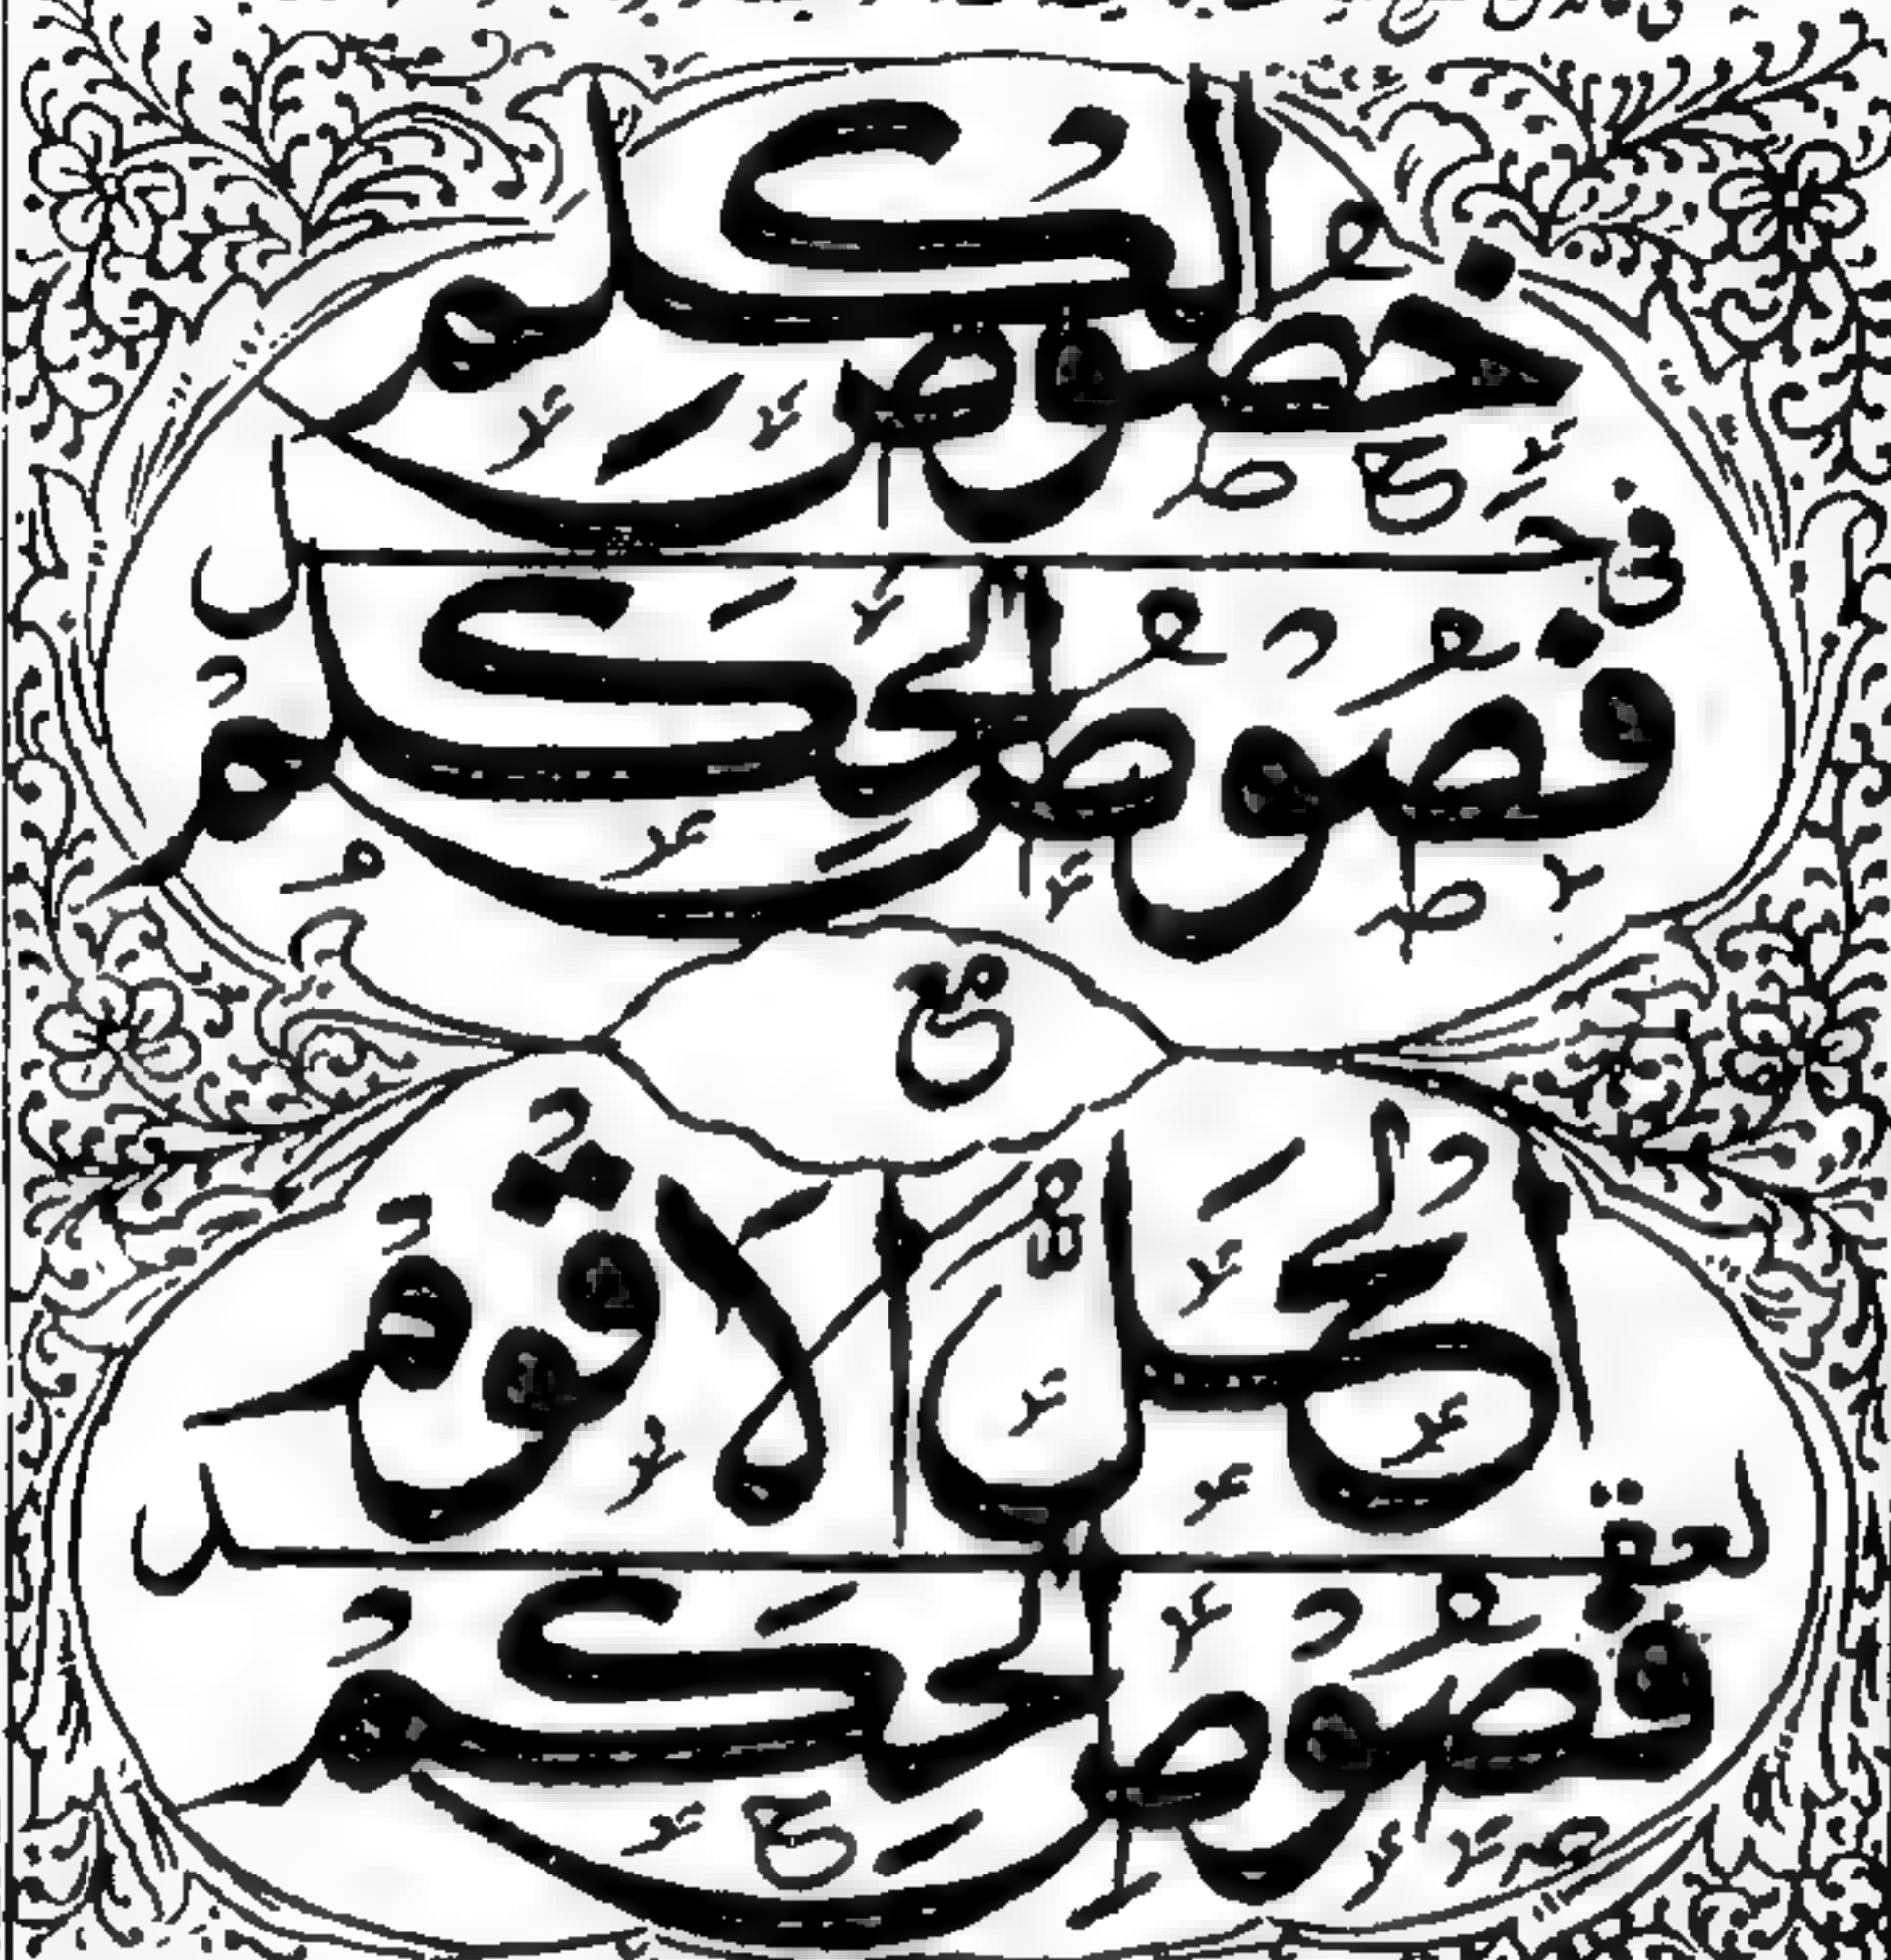 خصوص الكلم
في حل
فصوص الحكم
مع
الحل الاقوم
لعقد
فصوص الحكم